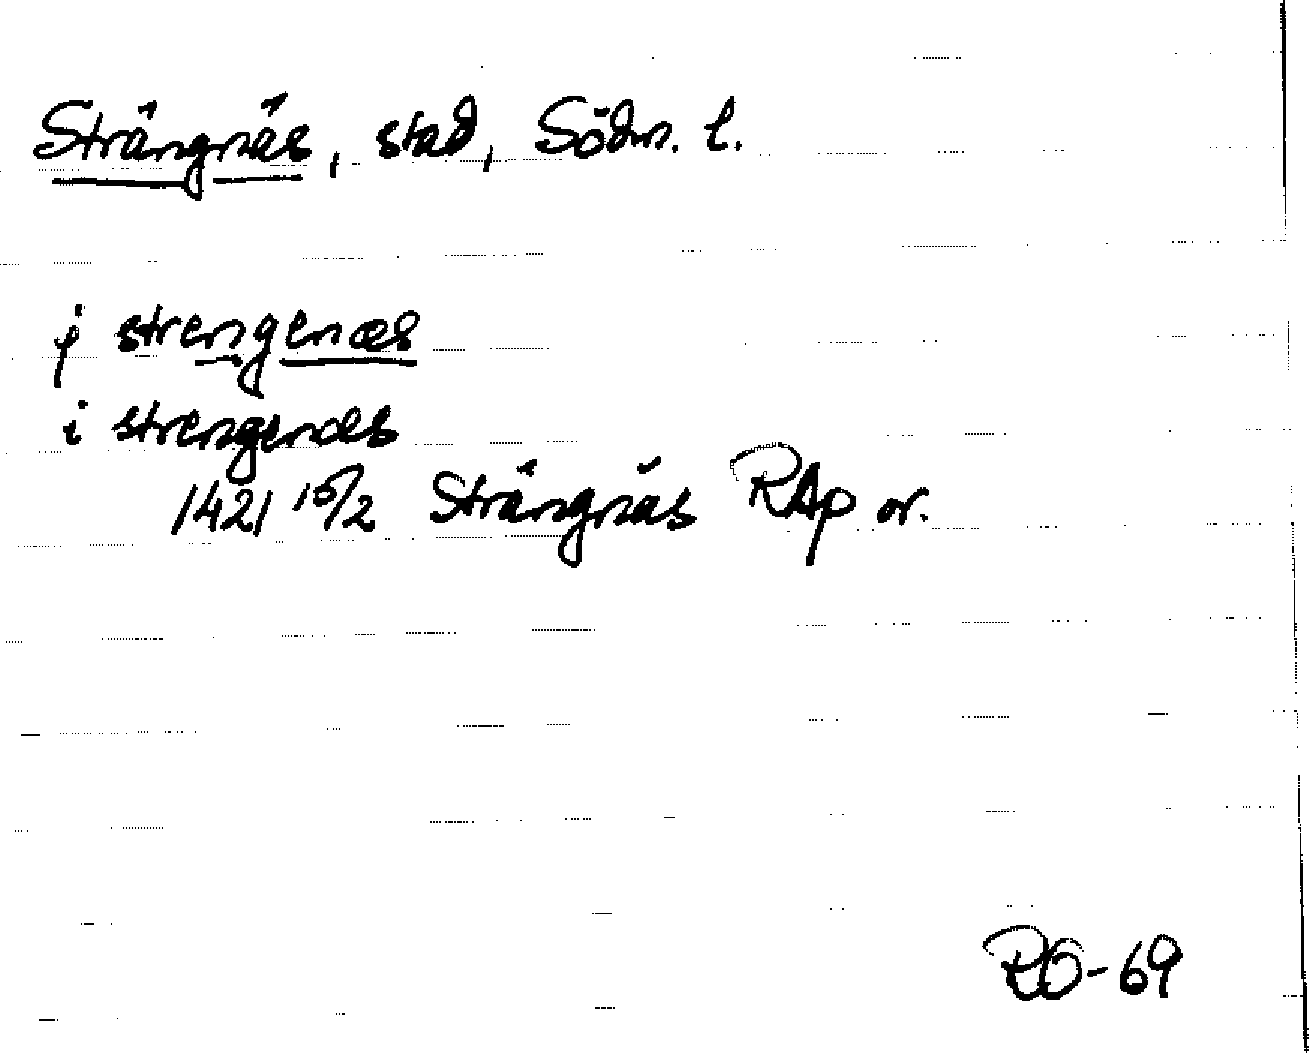 Strängnäs, stad, Södm. l.
j strengenæs
i strengenæs
1421 15/2 Strängnäs RAp or.
RO-69